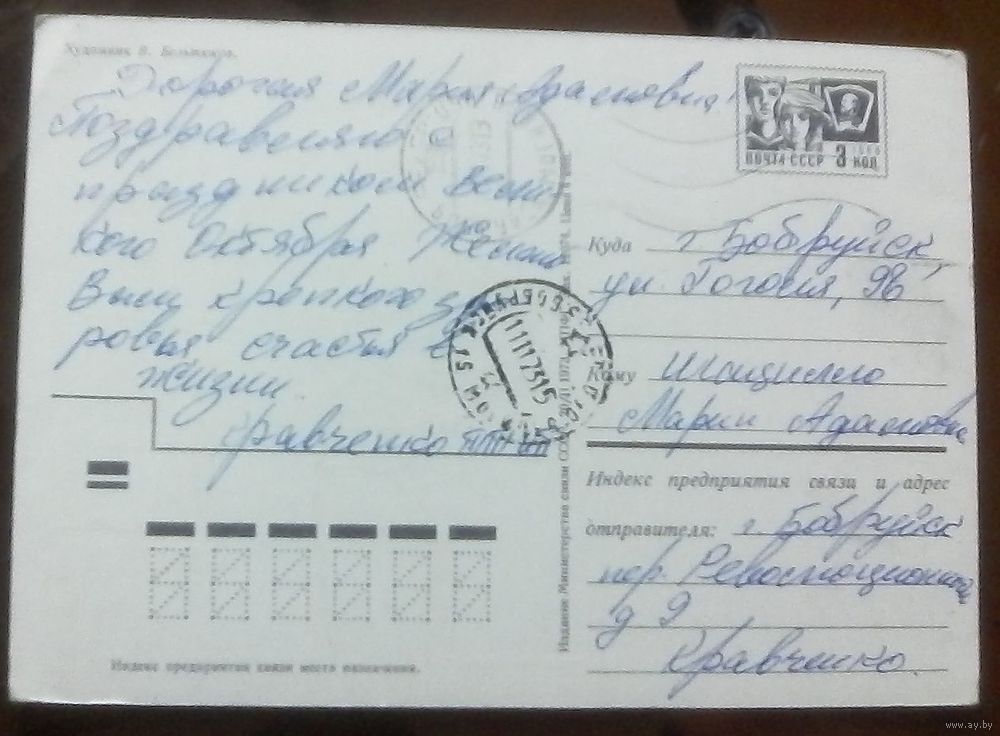 Художник В. Бельтюков.
Дорогая Мария Адамовна!
Поздравляю с
праздником Вели
кого Октября Желаю
Вам крепкого здо
ровья счастья в
жизни.
Кравченко
ПОЧТА СССР 3 КОП
1966
Куда г. Бобруйск,
ул. Гоголя, 98
Кому
Марии Адамовне
Индекс предприятия связи и адрес
отправителя: г. Бобруйск
пер. Революционный
д 9
Кравченко.
Издание Министерства связи СССР
Индекс предприятия связи места назначения.
www.ay.by